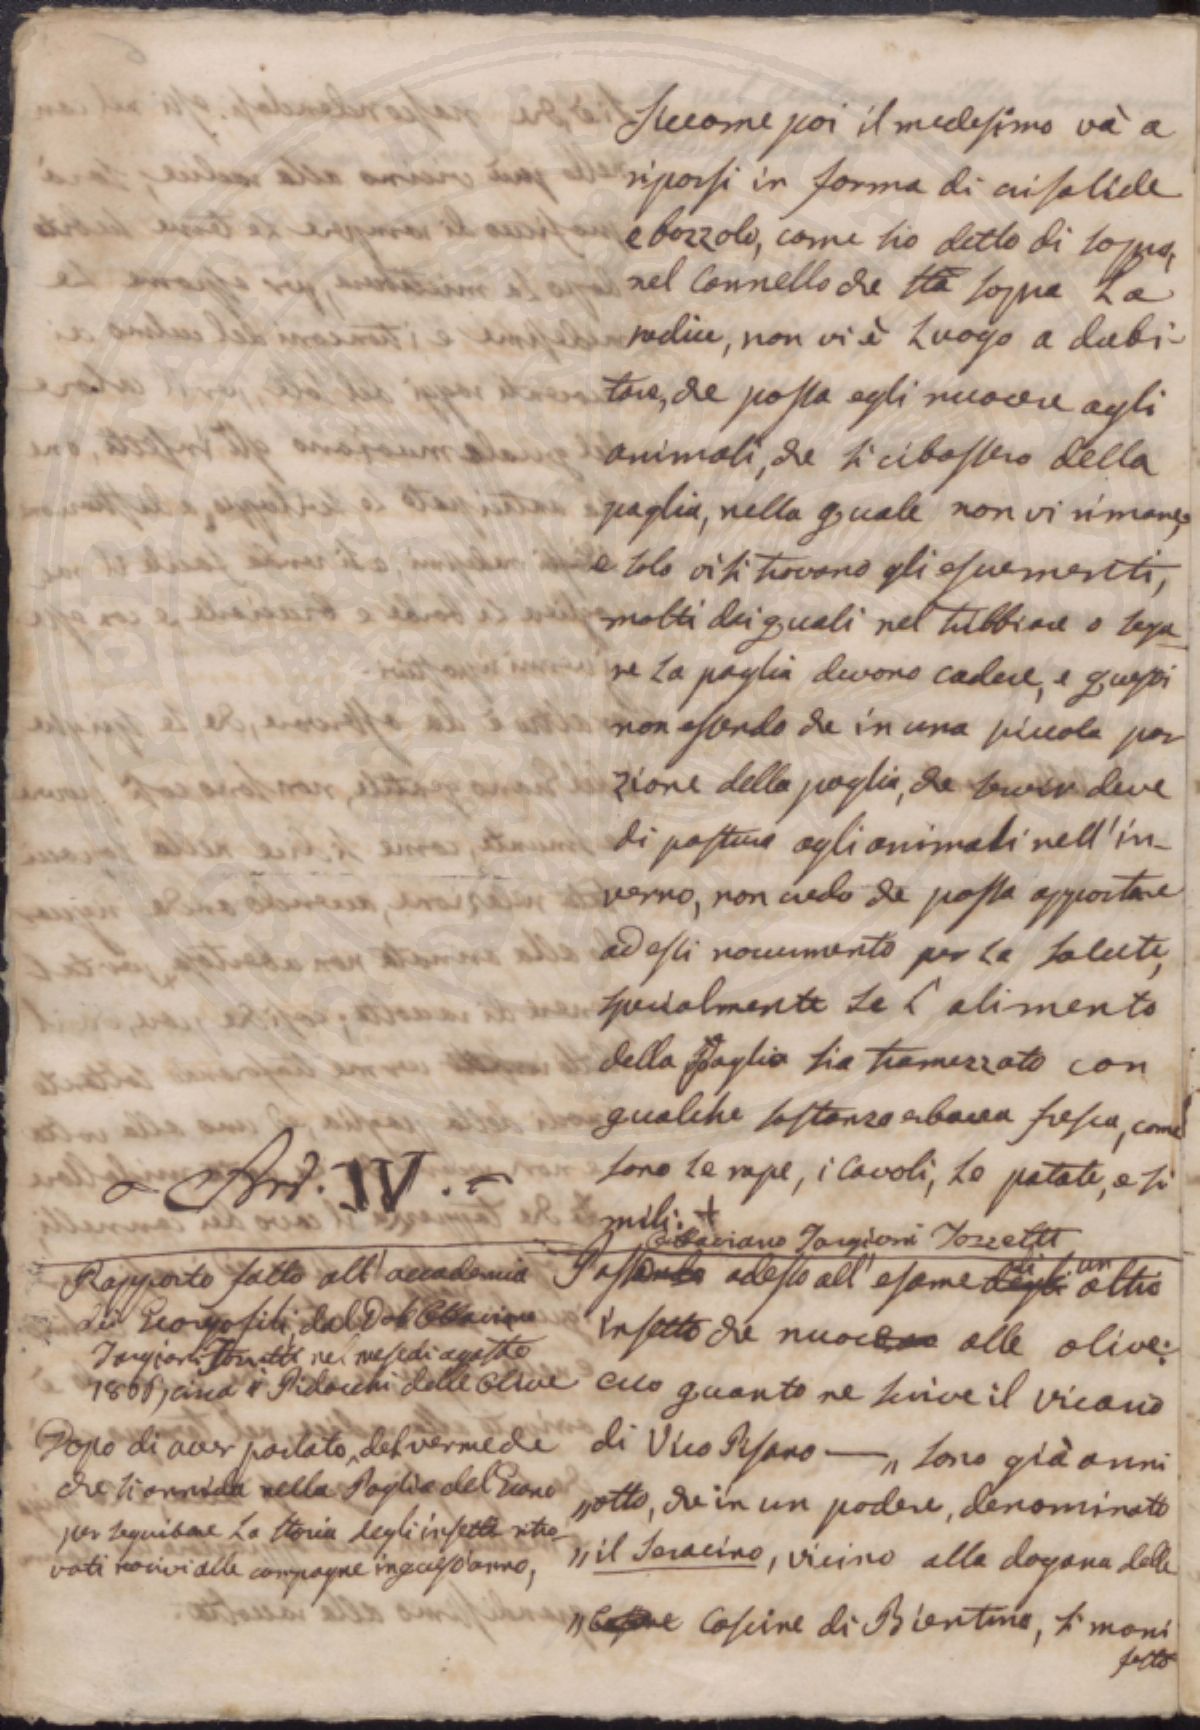 Siccome poi il medesimo và a
riporsi in forma di crisalide
e bozzolo, come hò detto di sopra,
nel Cannello che stà sopra la
radice, non vi è luogo a dubi-
tare, che possa egli nuocere agli
animali, che si cibassero della
paglia, nella quale non vi rimane,
e solo vi si trovano gli escrementi,
molti dei quali nel tribbiare o sega-
re la paglia devono cadere, e questi
non essendo che in una piccola por
zione della paglia, che servir deve
di pastura agli animali nell'in-
verno, non credo che possa apportare
ad essi nocumento per la salute,
specialmente se l'alimento
della Paglia sia tramezzato con
qualche sostanza erbacea fresca, come
sono le rape, i cavoli, le patate, e si
mili. +
Art. IV.
Ottaviano Targioni Tozzetti
Rapporto fatto all'accademia
dei Georgofili, dal Dott. Ottaviano
Targioni Tozzetti nel mese di agosto
1806, circa i Pidocchi delle Olive
Dopo di aver parlato, del verme che
che si annida nella Paglia del Grano
per seguitare la storia degli insetti ritro-
vati nocivi alle campagne in quest'anno,
Passando adesso all'esame degli di un altro
insetto che nuoce alle olive:
ecco quanto ne scrive il Vicario
di Vico Pisano — „ sono già anni
„ otto, che in un podere, denominato
„ il Seracino, vicino alla dogana delle
„ Cascine di Bientina, si mani
festò